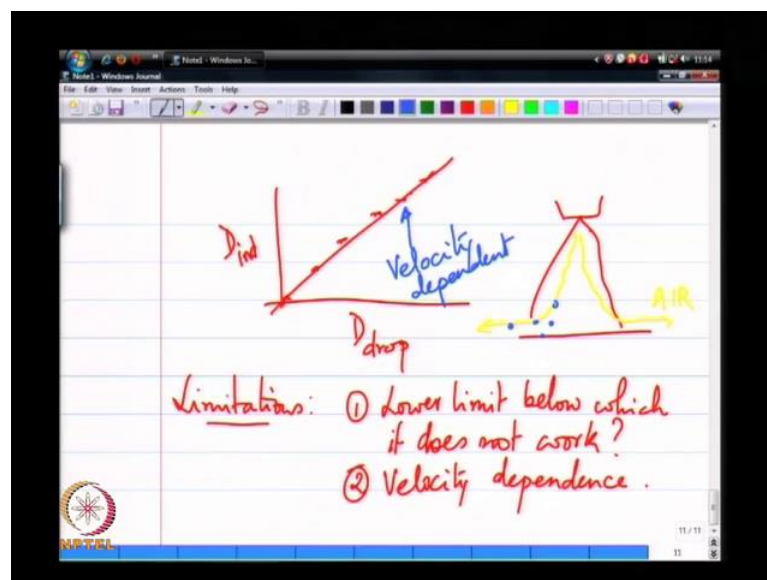 Note1 - Windows Jo...
11:54
Note1 - Windows Journal
File Edit View Insert Actions Tools Help
B I
D ind
Velocity
dependent
AIR
D drop
Limitations: ① Lower limit below which
it does not work?
② Velocity dependence.
NPTEL
11 / 11
11